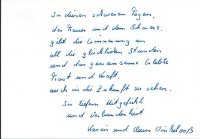 In diesen schweren Tagen,
der Trauer und dem Schmerz,
gibt die Erinnerung an
all die glücklichen Stunden
und das gemeinsame Erlebte
Trost und Kraft,
auch in die Zukunft zu sehen.
In tiefem Mitgefühl
und Verbundenheit
und Klaus